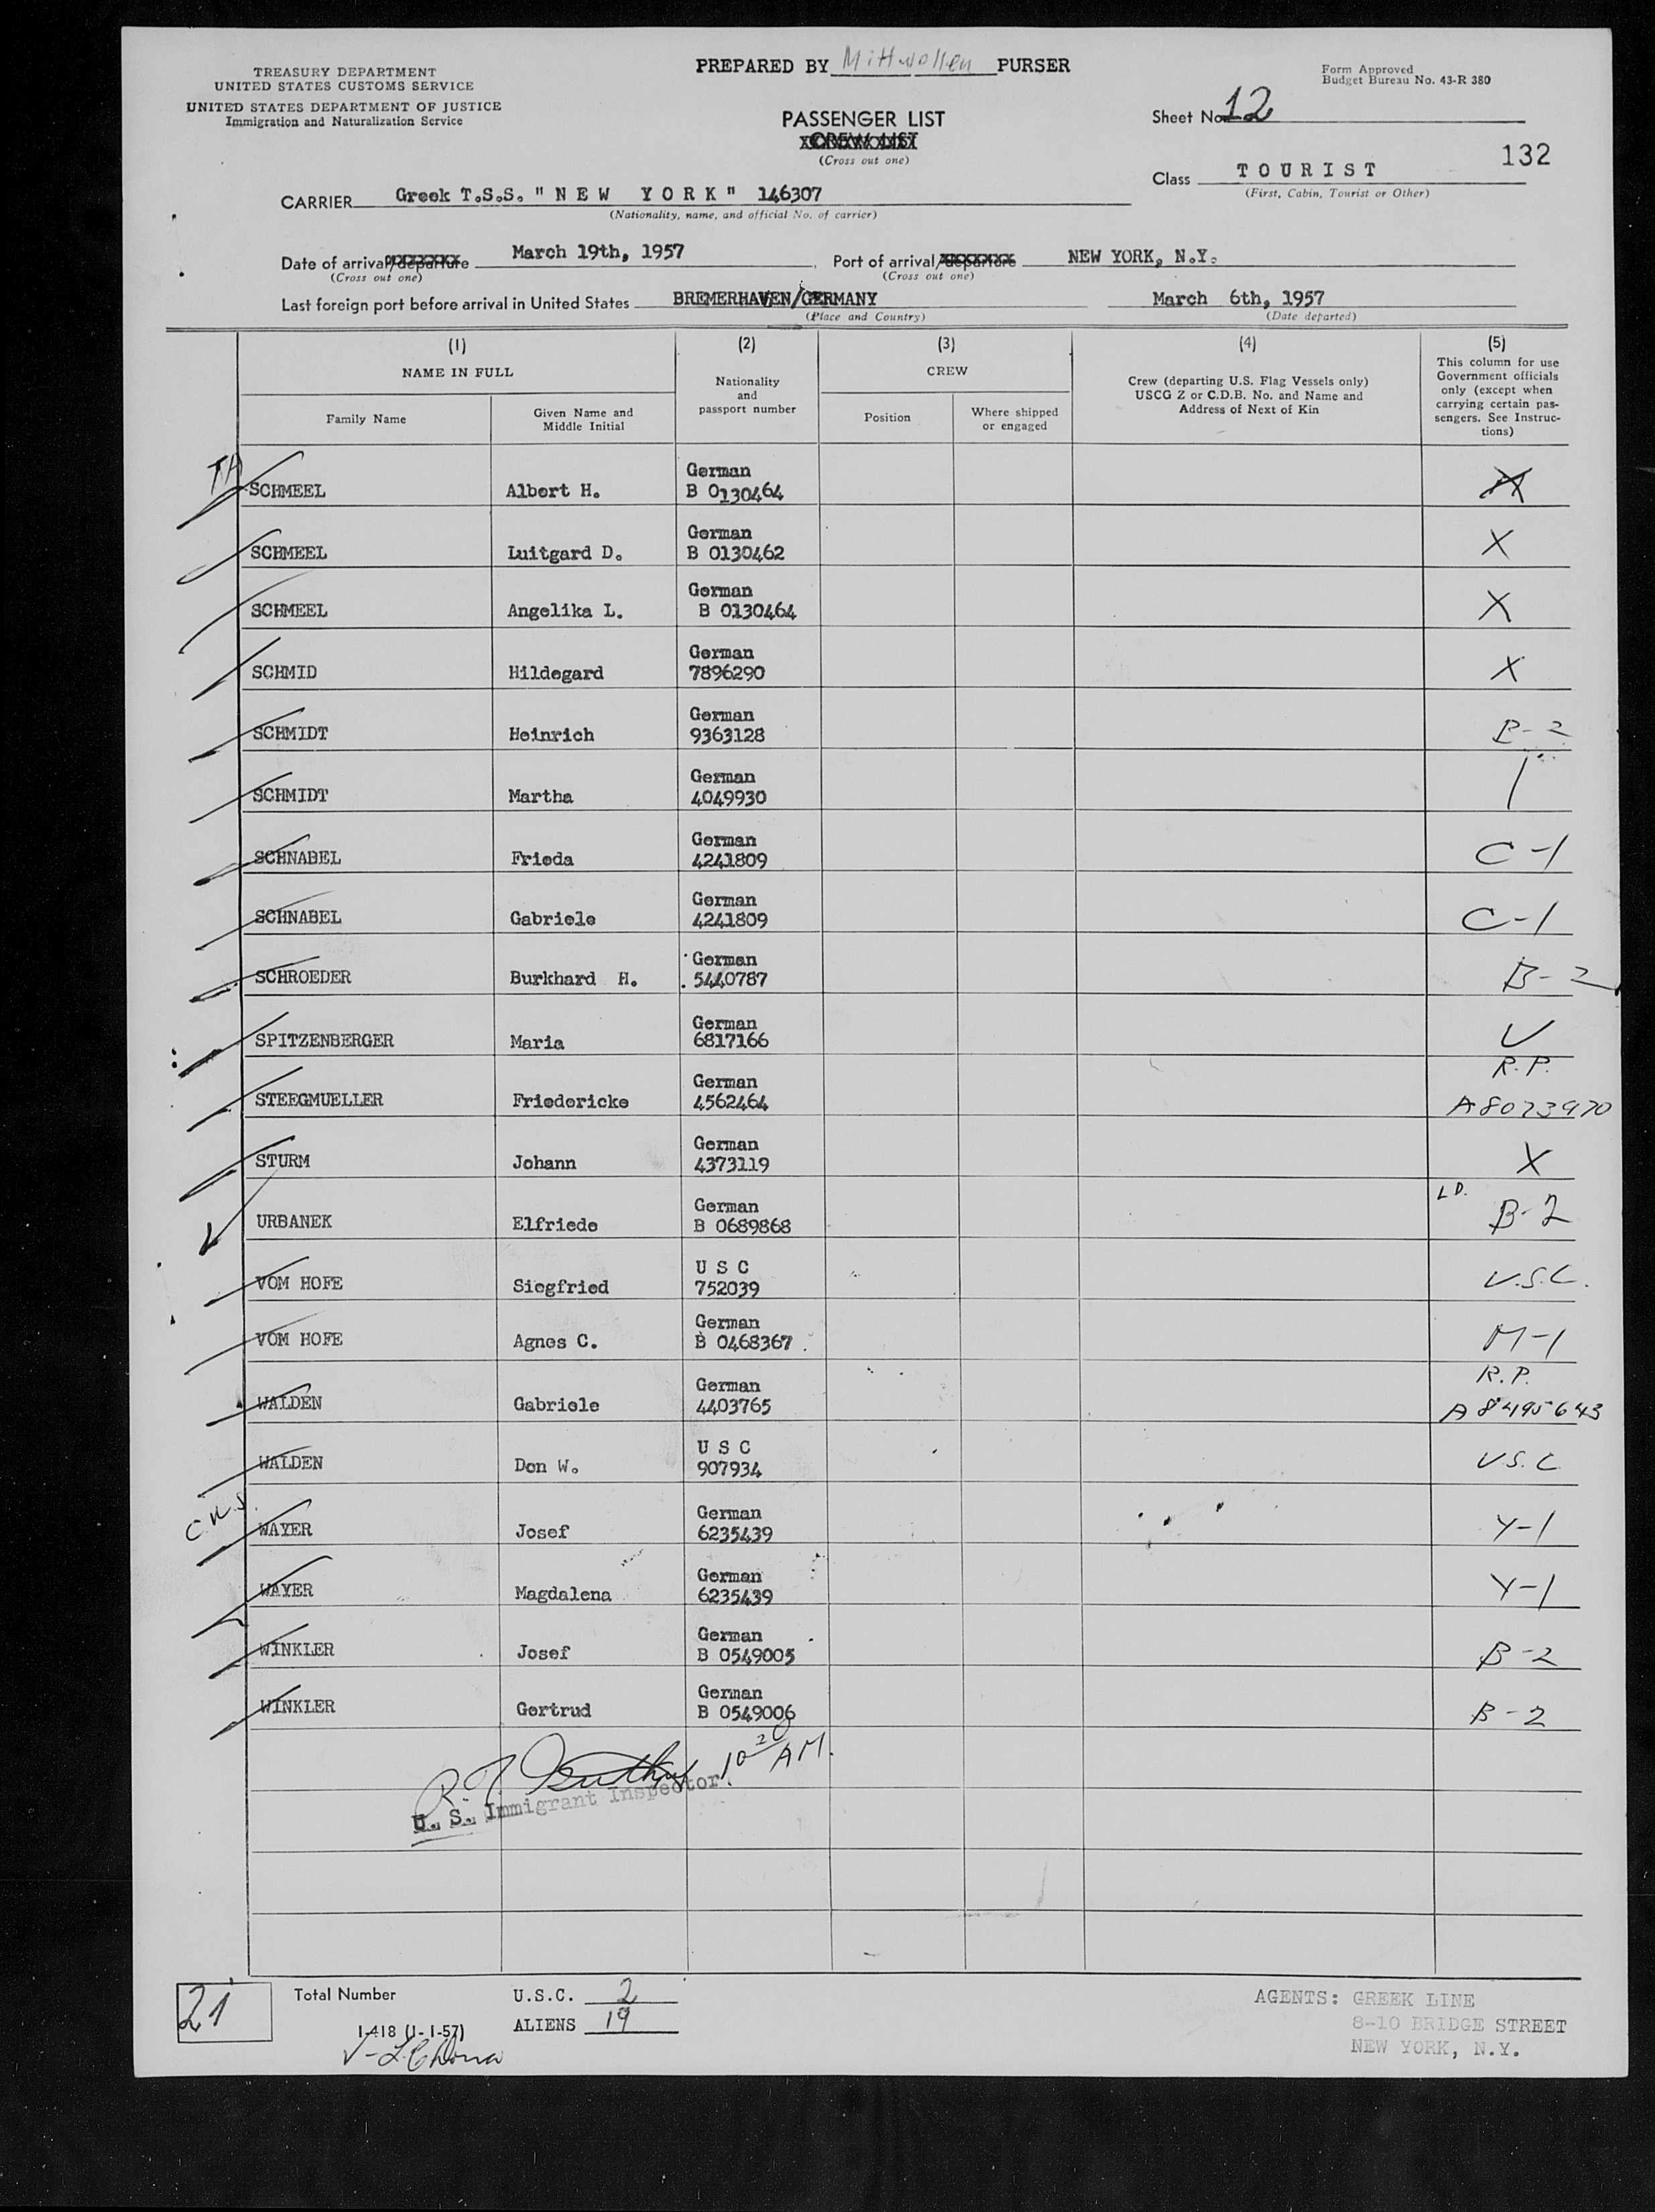 TREASURY DEPARTMENT
UNITED STATES CUSTOMS SERVICE
UNITED STATES DEPARTMENT OF JUSTICE
Immigration and Naturalization Service
PREPARED BY Mittwollen PURSER
Form Approved
Budget Bureau No. 43-R 380
PASSENGER LIST
CREW LIST
(Cross out one)
Sheet No. 12
132
Class TOURIST
(First, Cabin, Tourist or Other)
CARRIER Greek T.S.S. "NEW YORK" 146307
(Nationality, name, and official No. of carrier)
Date of arrival/departure March 19th, 1957 Port of arrival/departure NEW YORK, N.Y.
(Cross out one) (Cross out one)
Last foreign port before arrival in United States BREMERHAVEN/GERMANY March 6th, 1957
(Place and Country) (Date departed)
(1) (2) (3) (4) (5)
NAME IN FULL
Family Name
Given Name and
Middle Initial
Nationality
and
passport number
CREW
Position
Where shipped
or engaged
Crew (departing U.S. Flag Vessels only)
USCG Z or C.D.B. No. and Name and
Address of Next of Kin
This column for use
Government officials
only (except when
carrying certain pas-
sengers. See Instruc-
tions)
German
SCHMEEL Albert H. B 0130464
German
SCHMEEL Luitgard D. B 0130462 X
German
SCHMEEL Angelika L. B 0130464 X
German
SCHMID Hildegard 7896290 X
German
SCHMIDT Heinrich 9363128 B-2
German
SCHMIDT Martha 4049930
German
SCHNABEL Frieda 4241809 C-1
German
SCHNABEL Gabriele 4241809 C-1
German
SCHROEDER Burkhard H. 5440787 B-2
German
SPITZENBERGER Maria 6817166
German R.P.
STEEGMUELLER Friedericke 4562464 A8073970
German
STURM Johann 4373119 X
German L.D.
URBANEK Elfriede B 0689868 B-2
U S C
VOM HOFE Siegfried 752039 U.S.C.
German
VOM HOFE Agnes C. B 0468367 M-1
German R.P.
WALDEN Gabriele 4403765 A8495643
U S C
WALDEN Don W. 907934 U.S.C
German
WAYER Josef 6235439 Y-1
German
WAYER Magdalena 6235439 Y-1
German
WINKLER Josef B 0549005 B-2
German
WINKLER Gertrud B 0549006 B-2
10 20 AM.
U. S. Immigrant Inspector.
21 Total Number U.S.C. 2
ALIENS 19
I-418 (1-1-57)
AGENTS: GREEK LINE
8-10 BRIDGE STREET
NEW YORK, N.Y.